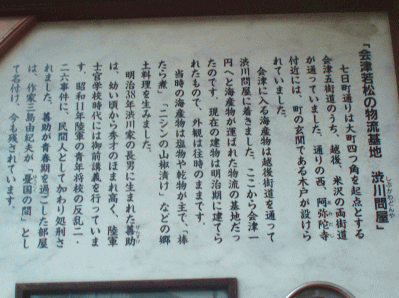 「会津若松の物流基地　渋川問屋」
しぶかわどんや
七日町通りは大町四つ角を起点とする
会津五街道のうち、越後、米沢の両街道
が通っていました。通りの西、阿弥陀寺
あみだじ
付近には、町の玄関である木戸が設けら
れていました。
会津に入る海産物は越後街道を通って
渋川問屋に着きました。ここから会津一
円へと海産物が運ばれた物流の基地だっ
たのです。現在の建物は明治期に建てら
れたもので、外観は往時のままです。
当時の海産物は塩物や乾物が主で、「棒
たら煮」「ニシンの山椒漬け」などの郷
土料理を生みました。
明治38年渋川家の長男に生まれた善助
ぜんすけ
は、幼い頃から秀才のほまれ高く、陸軍
士官学校時代には御前講義を行っていま
す。昭和11年陸軍の青年将校の反乱二・
二六事件に、民間人として加わり処刑さ
れました。善助が青春期を過ごした部屋
は、作家三島由紀夫が「憂国の間」とし
て名付け、今も残されています。